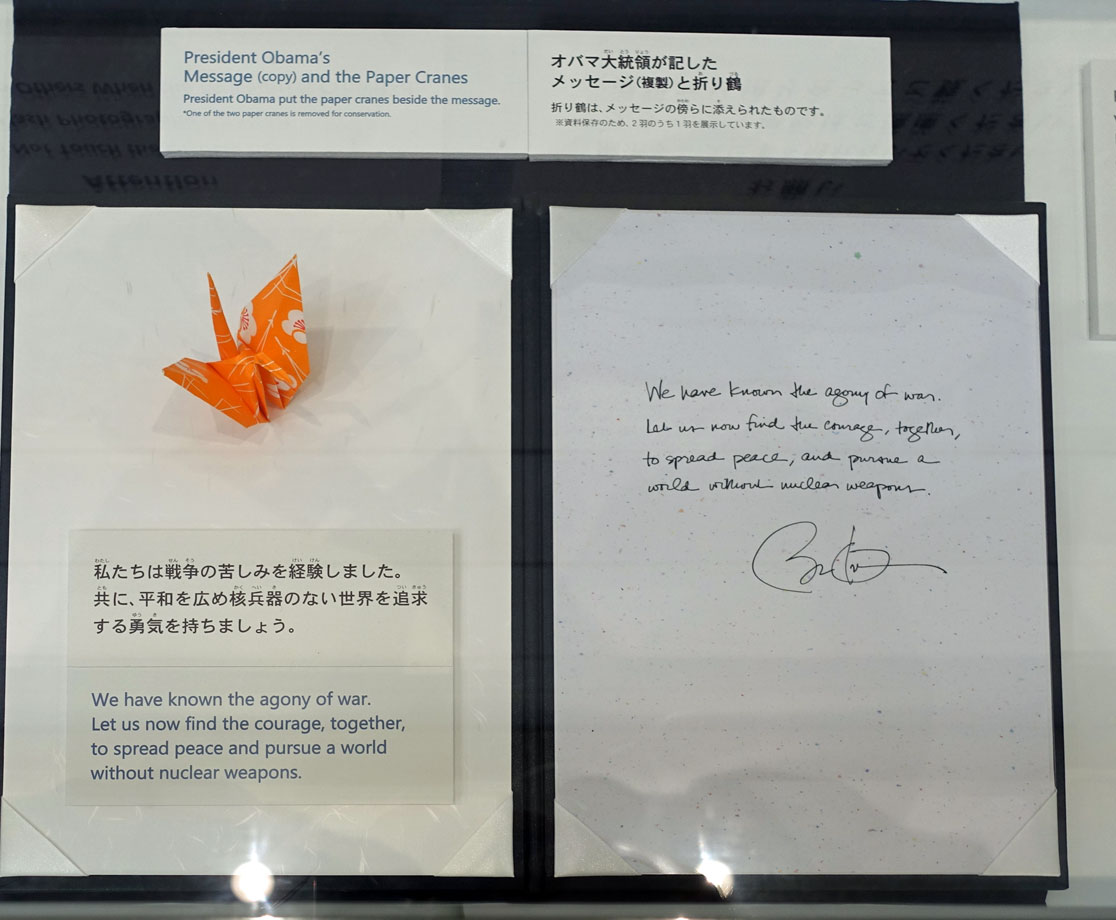 President Obama's
Message (copy) and the Paper Cranes
President Obama put the paper cranes beside the message.
*One of the two paper cranes is removed for conservation.
オバマ大統領が記した
メッセージ(複製)と折り鶴
折り鶴は、メッセージの傍らに添えられたものです。
※資料保存のため、2羽のうち1羽を展示しています。
私たちは戦争の苦しみを経験しました。
共に、平和を広め核兵器のない世界を追求
する勇気を持ちましょう。
We have known the agony of war.
Let us now find the courage, together,
to spread peace and pursue a world
without nuclear weapons.
We have known the agony of war.
Let us now find the courage, together,
to spread peace, and pursue a
world without nuclear weapons.